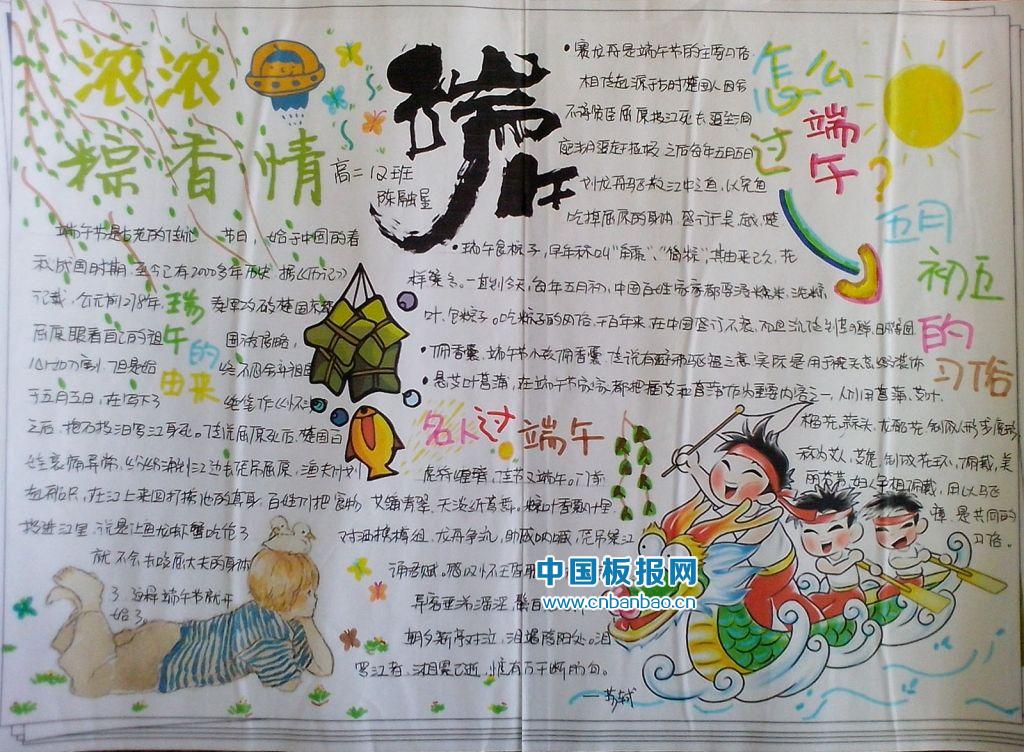 浓浓
粽香情
高二12班
端午
端午节是古老的传统节日，始于中国的春
秋战国时期，至今已有2000多年历史。据《史记》
记载，公元前278年，
端午的由来
屈原眼看自己的祖国被侵略，
于五月五日，在写下了
之后，抱石投汨罗江身死。传说屈原死后，楚国百
姓哀痛异常，纷纷涌到江边去凭吊屈原。渔夫们划
起船只，在江上来回打捞他的真身。百姓们把食物
投进江里，说是让鱼龙虾蟹吃饱了
就不会去咬屈大夫的身体
了。没每端午节就开
始了。
•赛龙舟是端午节的主要习俗
相传起源于古时楚国人因舍
不得贤臣屈原投江死去
之后每年五月五日
划龙舟
吃掉屈原的身体
怎么过端午？
五月初五的习俗
•端午食粽子，早年称叫“角黍”、“筒粽”，其由来已久，花
样繁多。一直到今天，每年五月初，中国百姓家家都要浸糯米、洗粽
叶、包粽子。吃粽子的风俗，千百年来，在中国盛行不衰，而且流传到朝鲜、日本
•佩香囊，端午节小孩佩香囊，传说有避邪驱瘟之意，实际是用于襟头点缀装饰
•悬艾叶菖蒲，在端午节，家家都把插艾和菖蒲作为重要内容之一，人们用菖蒲、艾叶、
榴花、蒜头、龙船花，制成人形
称为艾人，艾虎，制成花环、佩戴，美
丽芳香，妇人争相佩戴，用以
是共同的
习俗。
名人过端午
虎符缠臂，佳节又端午。门前
艾蒲青翠，天淡纸鸢舞。粽叶香飘十里
对酒携樽俎。龙舟争流，助威呐喊，凭吊祭江
诵君赋。感叹怀王昏
异客垂涕淫淫，鬓白
朝夕新亭对泣，泪竭陵阳处。汨
罗江渚，湘累已逝，惟有万千断肠句。
——苏轼
中国板报网
www.cnbanbao.cn